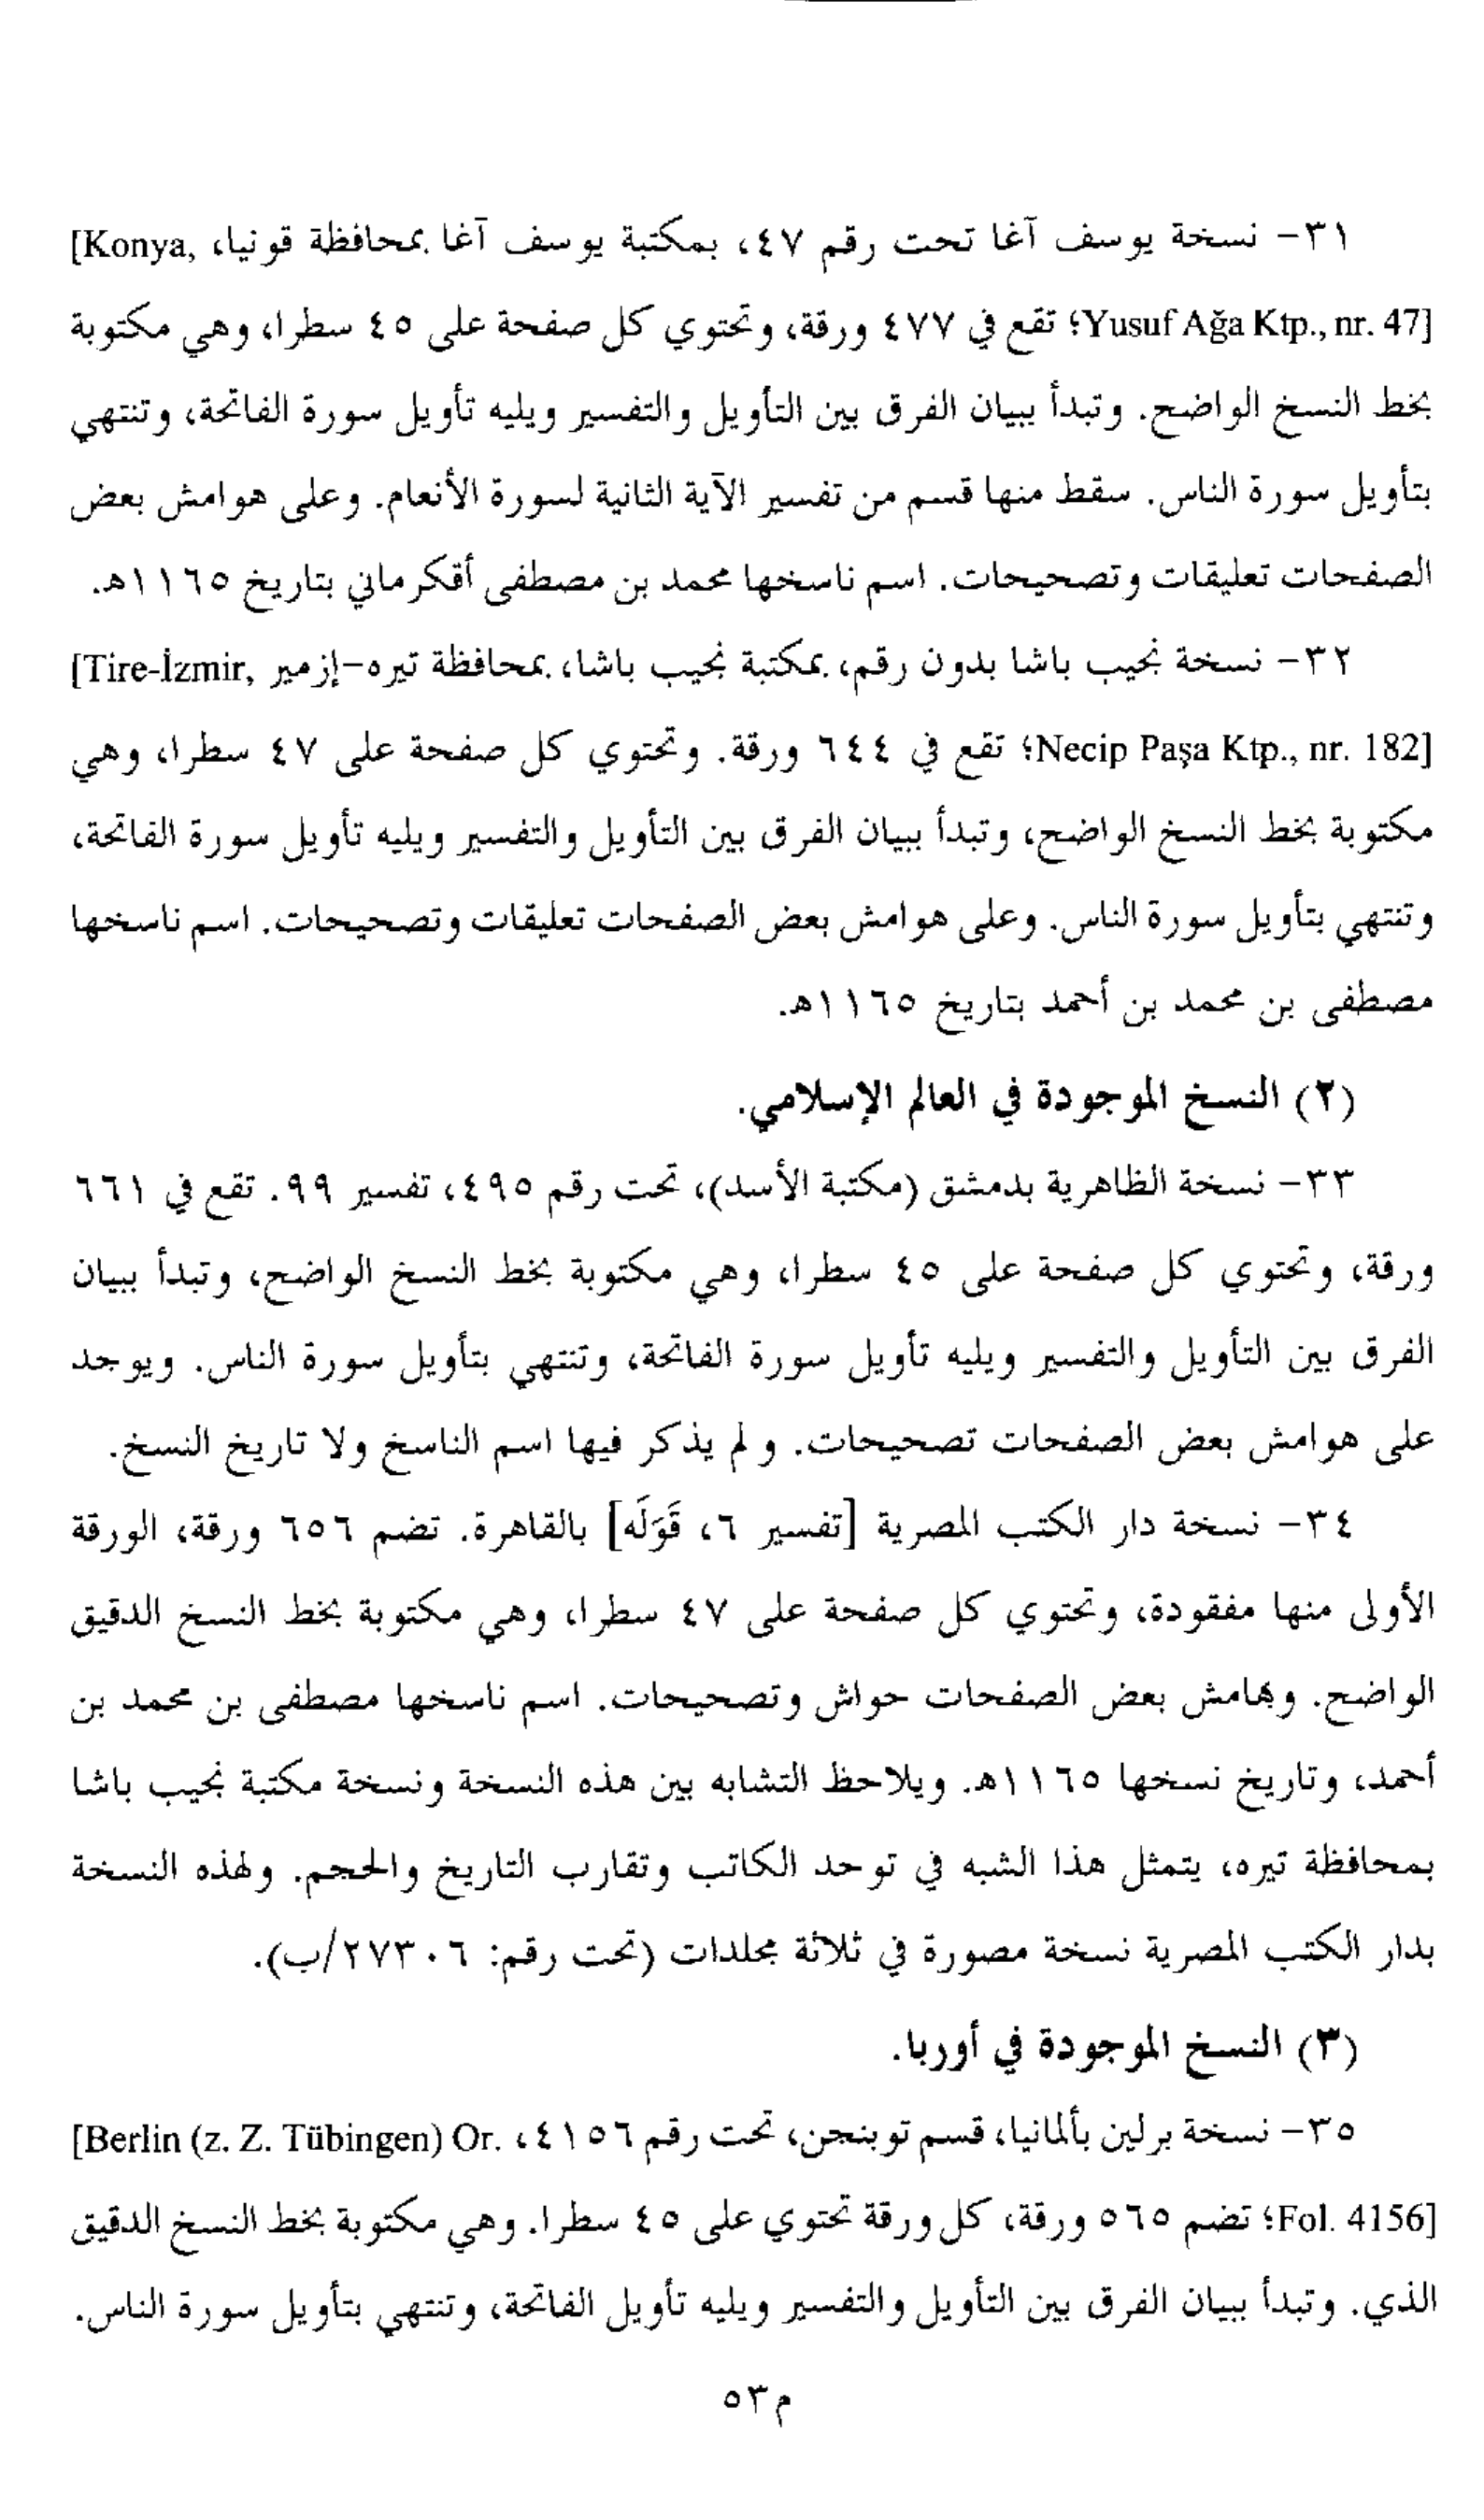 ٣١- نسخة يوسف آغا تحت رقم ٤٧، بمكتبة يوسف آغا بمحافظة قونيا، [Konya,
Yusuf Ağa Ktp., nr. 47]؛ تقع في ٤٧٧ ورقة، وتحتوي كل صفحة على ٤٥ سطرا، وهي مكتوبة
بخط النسخ الواضح. وتبدأ ببيان الفرق بين التأويل والتفسير ويليه تأويل سورة الفاتحة، وتنتهي
بتأويل سورة الناس. سقط منها قسم من تفسير الآية الثانية لسورة الأنعام. وعلى هوامش بعض
الصفحات تعليقات وتصحيحات. اسم ناسخها محمد بن مصطفى أقكرماني بتاريخ ١١٦٥هـ.
٣٢- نسخة نجيب باشا بدون رقم، بمكتبة نجيب باشا، بمحافظة تيره-إزمير [Tire-İzmir,
Necip Paşa Ktp., nr. 182]؛ تقع في ٦٤٤ ورقة. وتحتوي كل صفحة على ٤٧ سطرا، وهي
مكتوبة بخط النسخ الواضح، وتبدأ ببيان الفرق بين التأويل والتفسير ويليه تأويل سورة الفاتحة،
وتنتهي بتأويل سورة الناس. وعلى هوامش بعض الصفحات تعليقات وتصحيحات. اسم ناسخها
مصطفى بن محمد بن أحمد بتاريخ ١١٦٥هـ.
(٢) النسخ الموجودة في العالم الإسلامي.
٣٣- نسخة الظاهرية بدمشق (مكتبة الأسد)، تحت رقم ٤٩٥، تفسير ٩٩. تقع في ٦٦١
ورقة، وتحتوي كل صفحة على ٤٥ سطرا، وهي مكتوبة بخط النسخ الواضح، وتبدأ ببيان
الفرق بين التأويل والتفسير ويليه تأويل سورة الفاتحة، وتنتهي بتأويل سورة الناس. ويوجد
على هوامش بعض الصفحات تصحيحات. و لم يذكر فيها اسم الناسخ ولا تاريخ النسخ.
٣٤- نسخة دار الكتب المصرية [تفسير ٦، قَوَلَه] بالقاهرة. تضم ٦٥٦ ورقة، الورقة
الأولى منها مفقودة، وتحتوي كل صفحة على ٤٧ سطرا، وهي مكتوبة بخط النسخ الدقيق
الواضح. وبهامش بعض الصفحات حواش وتصحيحات. اسم ناسخها مصطفى بن محمد بن
أحمد، وتاريخ نسخها ١١٦٥هـ. ويلاحظ التشابه بين هذه النسخة ونسخة مكتبة نجيب باشا
بمحافظة تيره، يتمثل هذا الشبه في توحد الكاتب وتقارب التاريخ والحجم. ولهذه النسخة
بدار الكتب المصرية نسخة مصورة في ثلاثة مجلدات (تحت رقم: ٢٧٣٠٦/ب).
(٣) النسخ الموجودة في أوربا.
٣٥- نسخة برلين بألمانيا، قسم توبنجن، تحت رقم ٤١٥٦، [Berlin (z. Z. Tübingen) Or.
Fol. 4156]؛ تضم ٥٦٥ ورقة، كل ورقة تحتوي على ٤٥ سطرا. وهي مكتوبة بخط النسخ الدقيق
الذي. وتبدأ ببيان الفرق بين التأويل والتفسير ويليه تأويل الفاتحة، وتنتهي بتأويل سورة الناس.
م٥٣